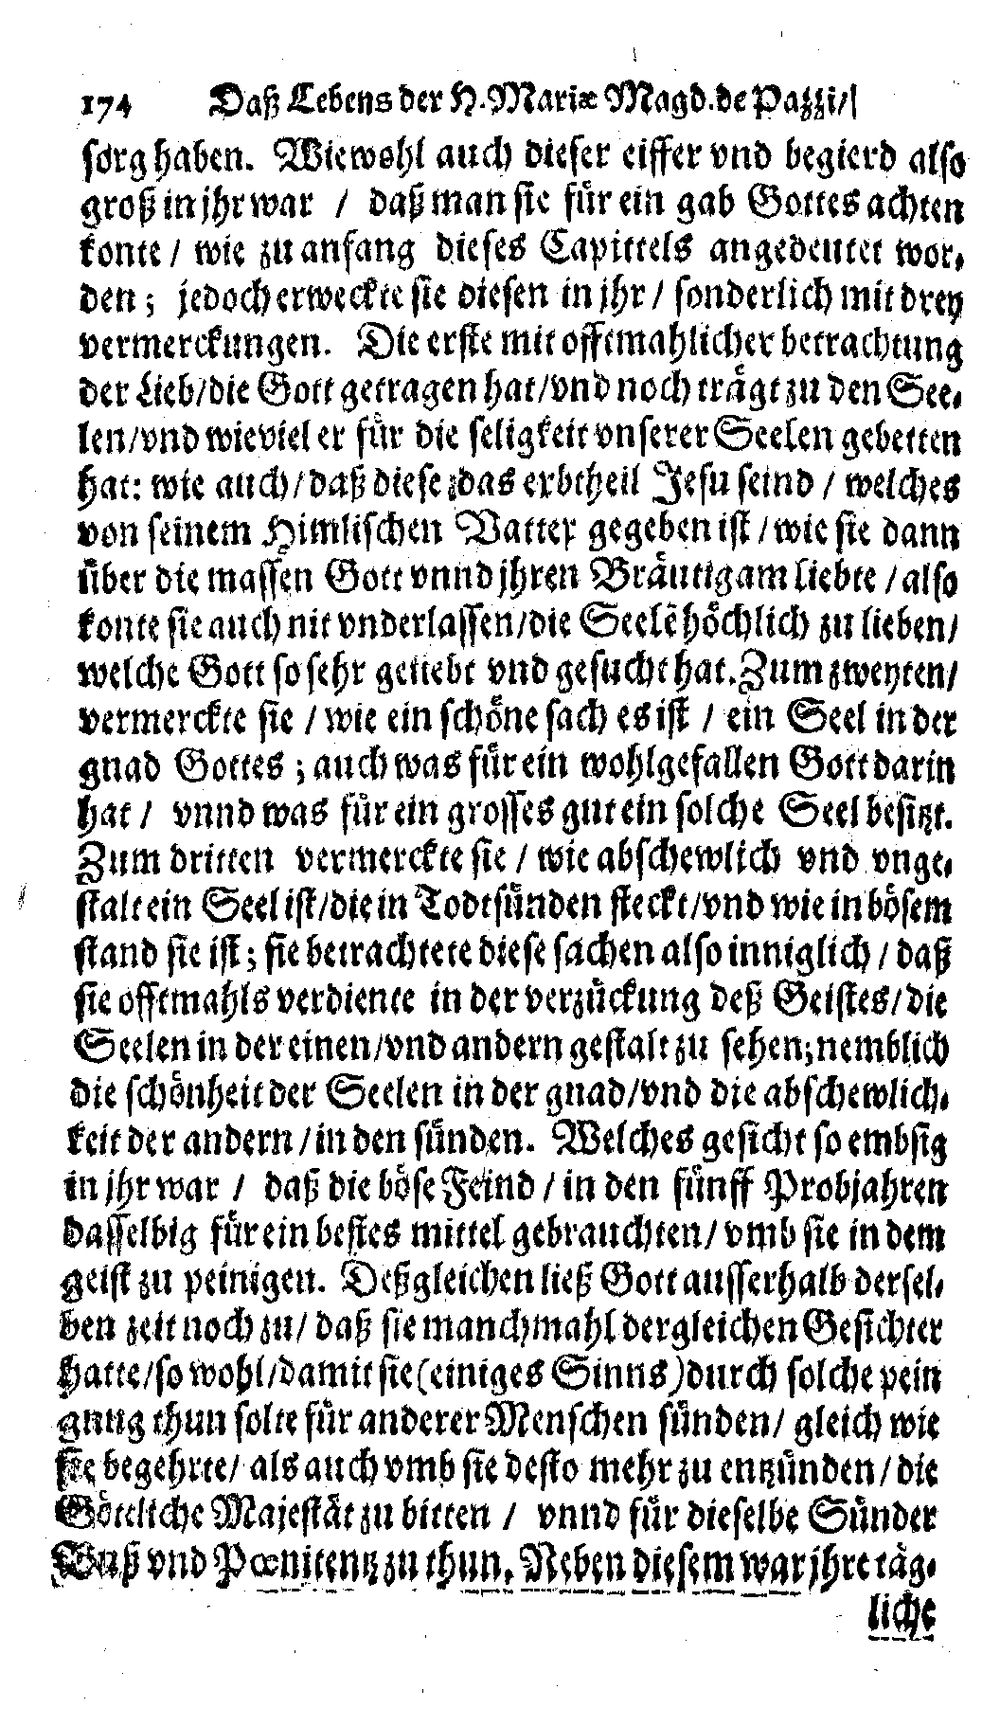 174 Daß Lebens der H. Mariæ Magd. de Pazzi/
sorg haben. Wiewohl auch dieser eiffer vnd begierd also
groß in jhr war / daß man sie für ein gab Gottes achten
konte / wie zu anfang dieses Capittels angedeutet wor-
den ; jedoch erweckte sie diesen in jhr / sonderlich mit drey
vermerckungen. Die erste mit offtmahlicher betrachtung
der Lieb/die Gott getragen hat/vnd noch trägt zu den See-
len/vnd wieviel er für die seligkeit vnserer Seelen gebetten
hat: wie auch/daß diese das erbtheil Jesu seind / welches
von seinem Himlischen Vatter gegeben ist / wie sie dann
über die massen Gott vnnd jhren Bräutigam liebte / also
konte sie auch nit vnderlassen/die Seelē höchlich zu lieben/
welche Gott so sehr geliebt vnd gesucht hat. Zum zweyten/
vermerckte sie / wie ein schöne sach es ist / ein Seel in der
gnad Gottes ; auch was für ein wohlgefallen Gott darin
hat / vnnd was für ein grosses gut ein solche Seel besitzt.
Zum dritten vermerckte sie / wie abschewlich vnd vnge-
stalt ein Seel ist/die in Todtsünden steckt/vnd wie in bösem
stand sie ist ; sie betrachtete diese sachen also inniglich / daß
sie offtmahls verdiente in der verzückung deß Geistes/die
Seelen in der einen/vnd andern gestalt zu sehen; nemblich
die schönheit der Seelen in der gnad/vnd die abschewlich-
keit der andern / in den sünden. Welches gesicht so embsig
in jhr war / daß die böse Feind / in den fünff Probjahren
dasselbig für ein bestes mittel gebrauchten/ vmb sie in dem
geist zu peinigen. Deßgleichen ließ Gott ausserhalb dersel-
ben zeit noch zu/ daß sie manchmahl dergleichen Gesichter
hatte/so wohl/damit sie (einiges Sinns) durch solche pein
gnug thun solte für anderer Menschen sünden/ gleich wie
sie begehrte/ als auch vmb sie desto mehr zu entzünden/die
Göttliche Majestät zu bitten / vnnd für dieselbe Sünder
Buß vnd Pœnitentz zu thun. Neben diesem war jhre täg-
liche